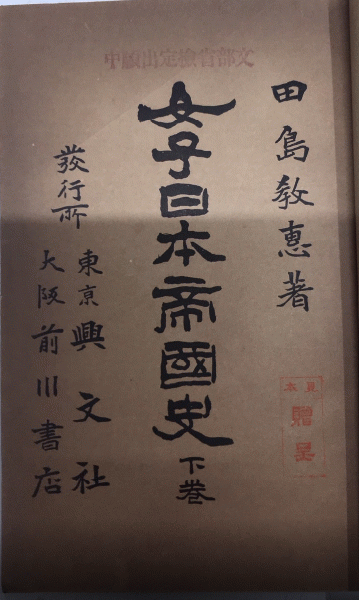 文部省檢定出版中
田島教惠著
女子日本帝國史
下巻
發行所
東京 興文社
大阪 前川書店
見本
贈呈